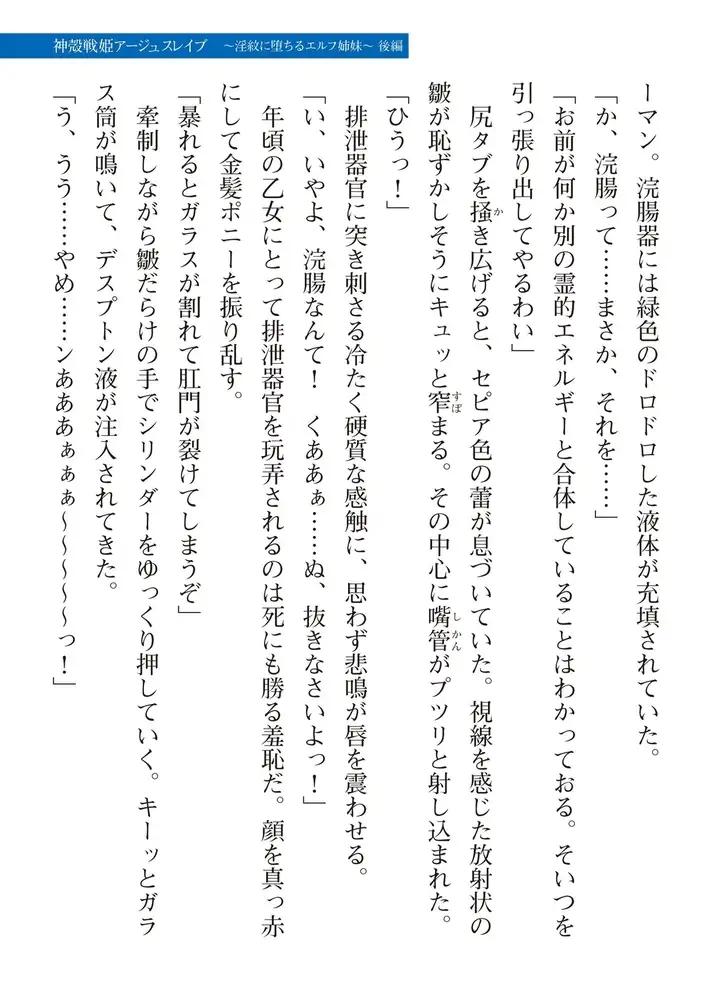 神殻戦姫アージュスレイブ　～淫紋に堕ちるエルフ姉妹～ 後編
ーマン。浣腸器には緑色のドロドロした液体が充填されていた。
「か、浣腸って……まさか、それを……」
「お前が何か別の霊的エネルギーと合体していることはわかっておる。そいつを
引っ張り出してやるわい」
　尻タブを掻き広げると、セピア色の蕾が息づいていた。視線を感じた放射状の
皺が恥ずかしそうにキュッと窄まる。その中心に嘴管がプツリと射し込まれた。
「ひうっ！」
　排泄器官に突き刺さる冷たく硬質な感触に、思わず悲鳴が唇を震わせる。
「い、いやよ、浣腸なんて！　くああぁ……ぬ、抜きなさいよっ！」
　年頃の乙女にとって排泄器官を玩弄されるのは死にも勝る羞恥だ。顔を真っ赤
にして金髪ポニーを振り乱す。
「暴れるとガラスが割れて肛門が裂けてしまうぞ」
　牽制しながら皺だらけの手でシリンダーをゆっくり押していく。キーッとガラ
ス筒が鳴いて、デスプトン液が注入されてきた。
「う、うう……やめ……ンあああぁぁぁ～～～～～っ！」